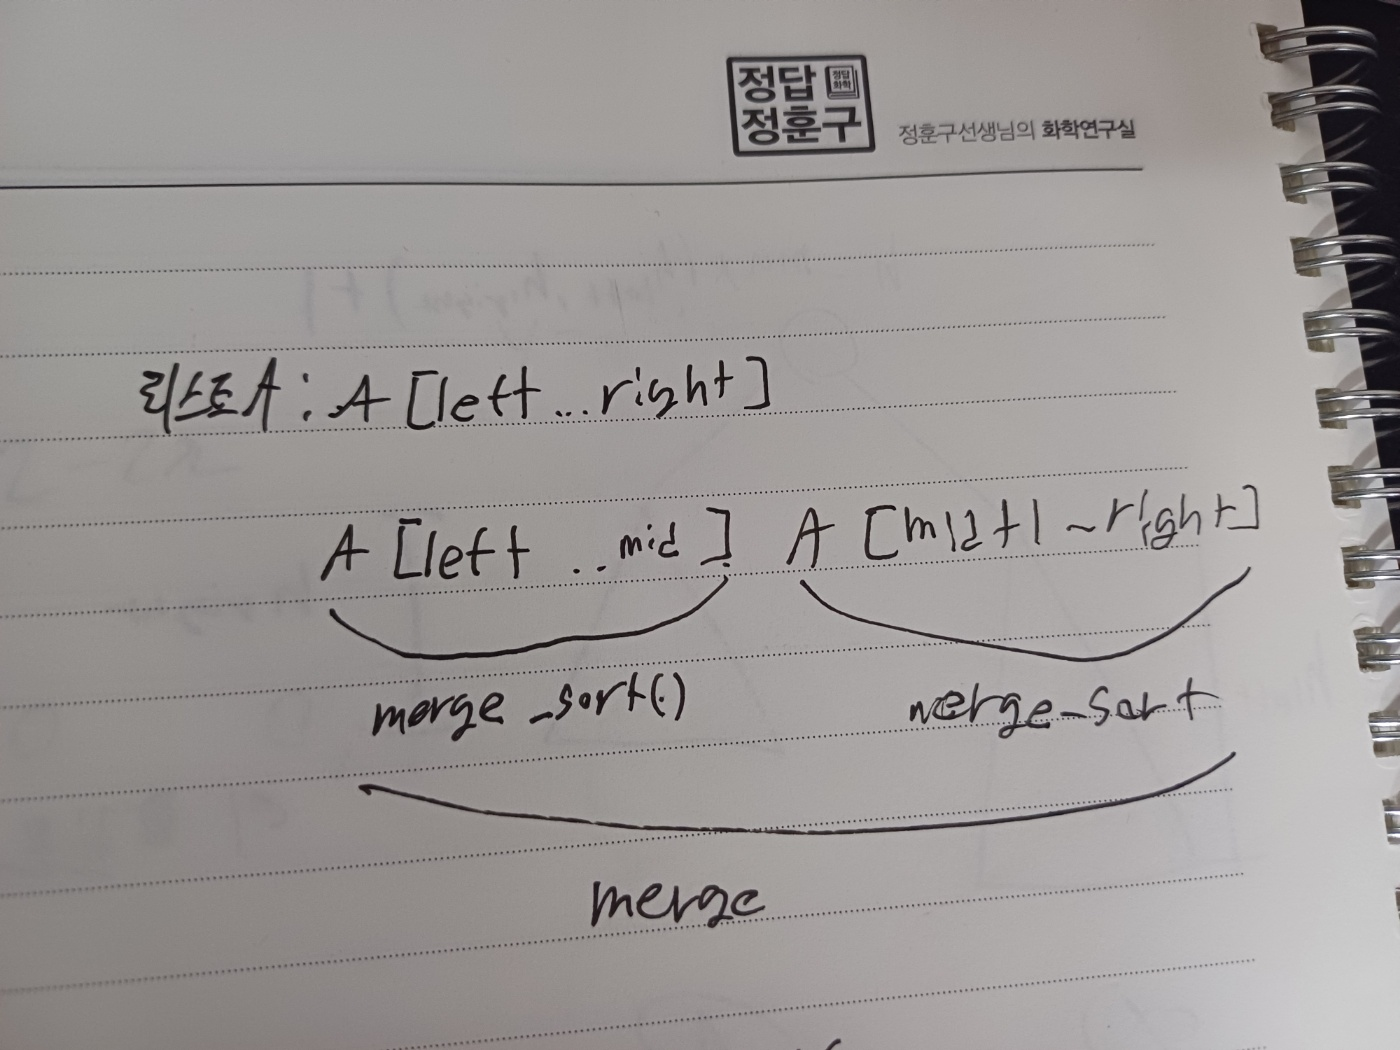 정답 정답화학
정훈구
정훈구선생님의 화학연구실
리스트A : A [left ... right]
A [left .. mid] A [mid+1 ~ right]
merge _sort() merge_sort
merge